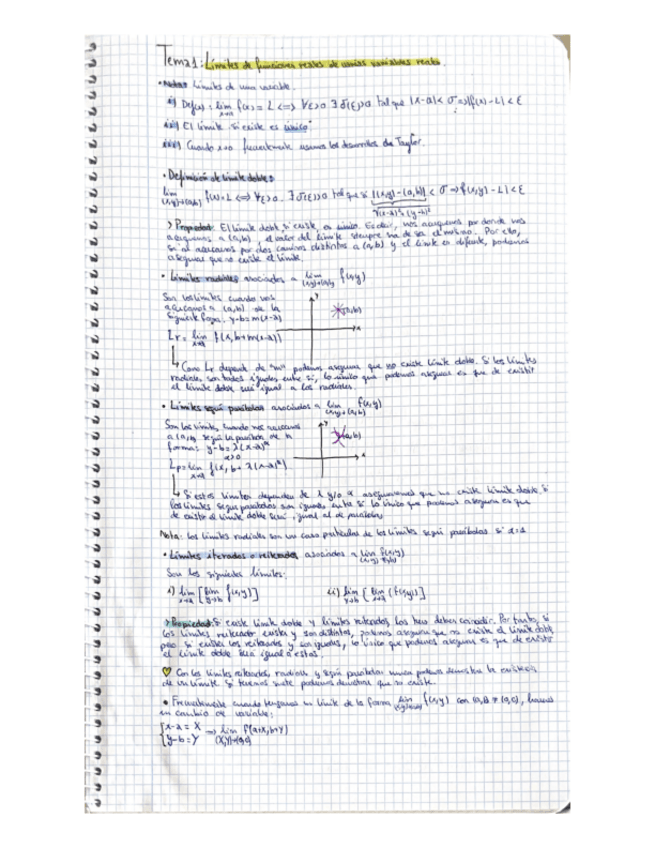 Tema 1: Límites de funciones reales de varias variables reales.
• Notas: Límites de una variable.
i) Def(ε): lim f(x) = L <=> ∀ε>0 ∃ δ(ε)>0 tal que |x-a| < σ => |f(x)-L| < ε
ii) El límite si existe es único
iii) Cuando x→0 frecuentemente usamos los desarrollos de Taylor.
• Definición de límite doble:
lim f(x) = L <=> ∀ε>0. ∃ σ(ε)>0 tal que si |(x,y)-(a,b)| < σ => f(x,y)-L| < ε
(x,y)→(a,b)
√(x-a)²+(y-b)²
> Propiedad: El límite doble, si existe, es único. Es decir, nos acerquemos por donde nos
acerquemos a (a,b), el valor del límite siempre ha de ser el mismo. Por ello,
si al acercarnos por dos caminos distintos a (a,b) y el límite es diferente, podemos
asegurar que no existe el límite.
• Límites radiales asociados a lim f(x,y)
(x,y)→(a,b)
Son los límites cuando nos
acercamos a (a,b) de la
siguiente forma: y-b=m(x-a)
Lr = lim f(x, b+m(x-a))
x→a
y
(a,b)
x
Como Lr depende de "m" podemos asegurar que no existe límite doble. Si los límites
radiales son todos iguales entre sí, lo único que podemos asegurar es que de existir
el límite doble será igual a los radiales
• Límites según parábolas asociados a lim f(x,y)
(x,y)→(a,b)
Son los límites, cuando nos acercamos
a (a,b) según la parábola de la
forma: y-b = λ(x-a)^α
α>0
Lp = lim f(x, b+λ(x-a)^α)
x→a
y
(a,b)
x
Si estos límites dependen de λ y/o α aseguraremos que no existe límite doble. Si
los límites según parábolas son iguales entre sí lo único que podemos asegurar es que
de existir el límite doble será igual al de parábolas
Nota: los límites radiales son un caso particular de los límites según parábolas si α=1
• Límites iterados o reiterados asociados a lim f(x,y)
(x,y)→(a,b)
Son los siguientes límites:
i) lim [lim f(x,y)] ii) lim [lim (f(x,y))]
x→a y→b y→b x→a
> Propiedad: Si existe límite doble y límites reiterados, los tres deben coincidir. Por tanto, si
los límites reiterados existen y son distintos, podemos asegurar que no existe el límite doble,
pero si existen los reiterados y son iguales, lo único que podemos asegurar es que de existir
el límite doble será igual a estos.
Con los límites reiterados, radiales y según parábolas nunca podemos demostrar la existencia
de un límite. Si tenemos suerte podemos demostrar que no existe.
• Frecuentemente cuando tengamos un límite de la forma lim f(x,y) con (a,b) ≠ (0,0), haremos
(x,y)→(a,b)
un cambio de variable:
{x-a = X
{y-b = Y => lim f(a+X, b+Y)
(X,Y)→(0,0)